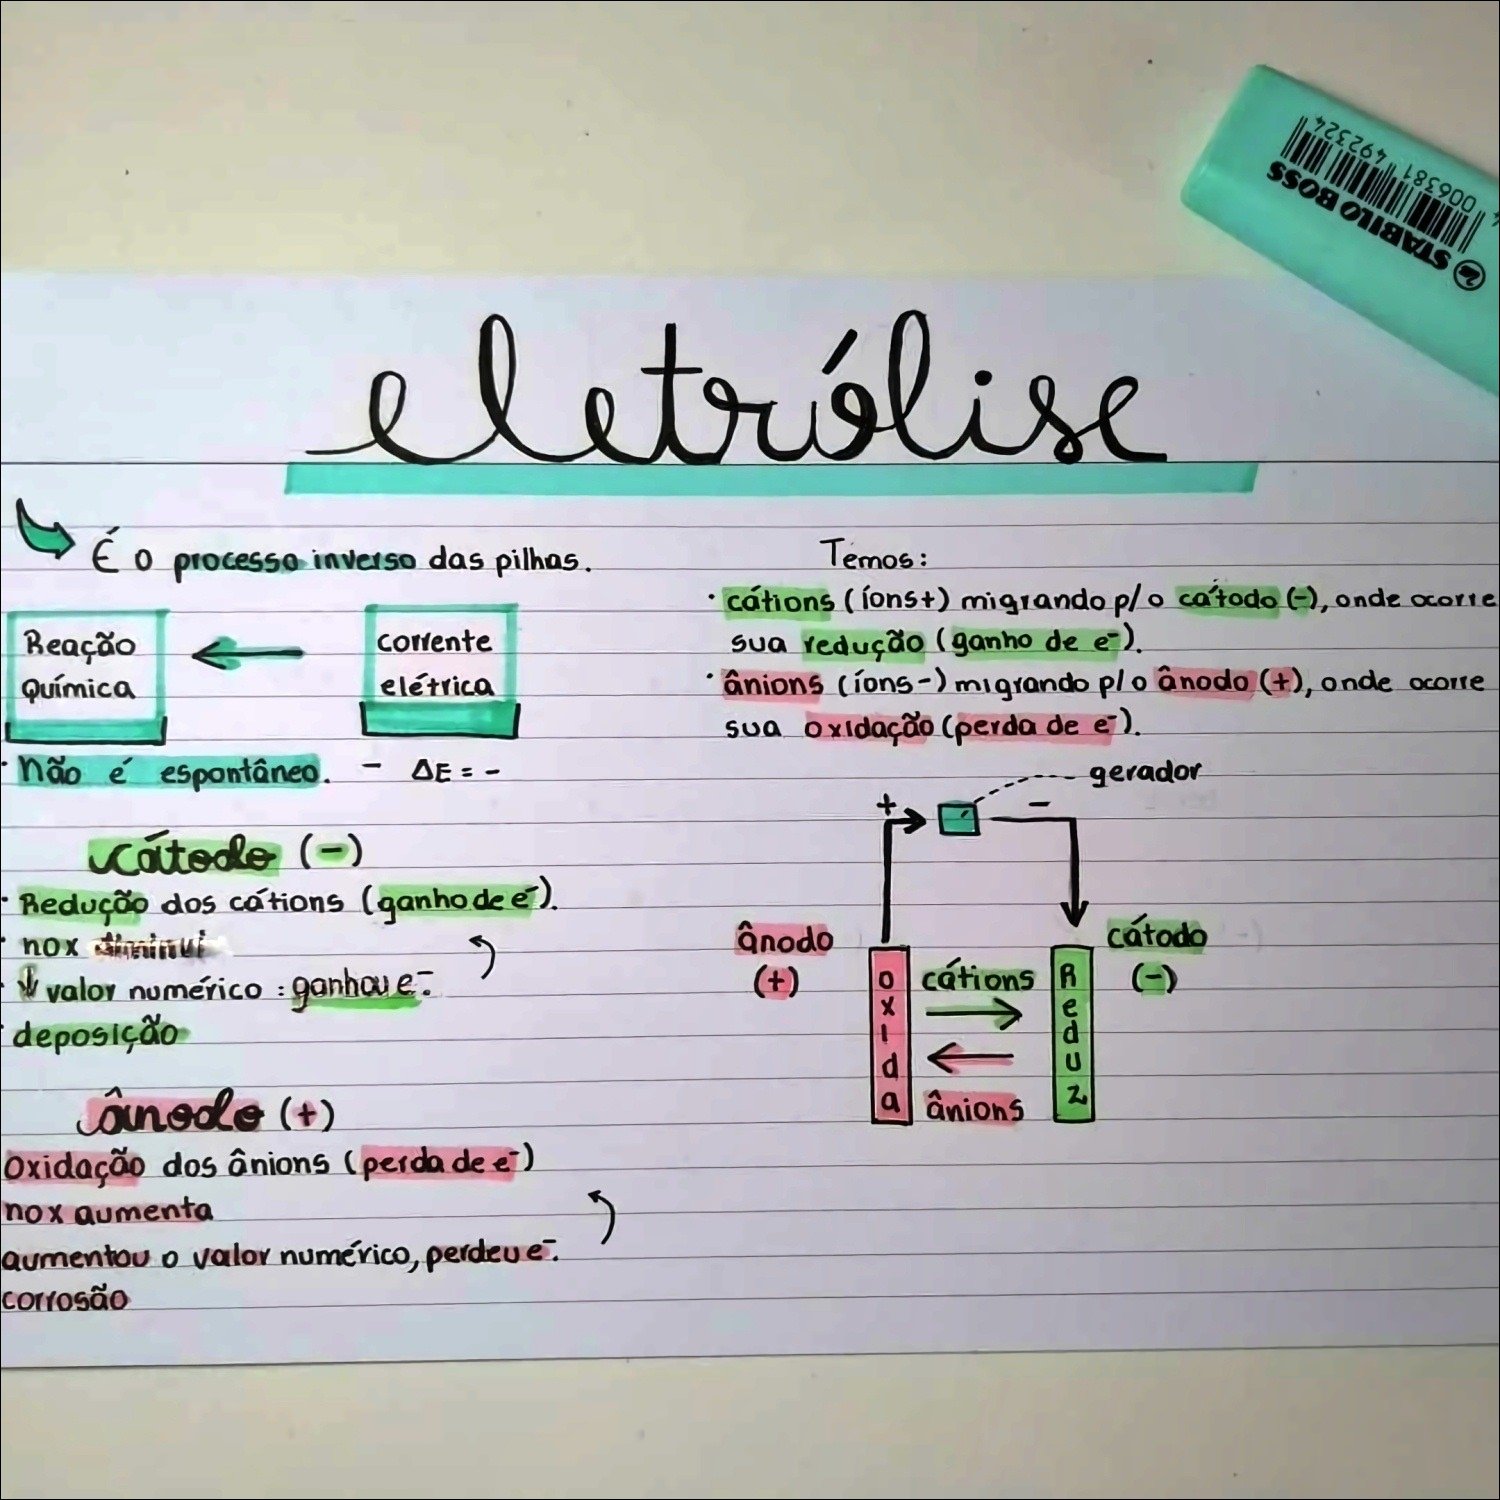 STABILO BOSS
006381 492324
eletrólise
É o processo inverso das pilhas.
Reação
Química
corrente
elétrica
· Não é espontâneo. - ΔE = -
cátodo (-)
· Redução dos cátions (ganho de e⁻).
· nox diminui
· ↓ valor numérico : ganhou e⁻.
· deposição
ânodo (+)
Oxidação dos ânions (perda de e⁻)
nox aumenta
aumentou o valor numérico, perdeu e⁻.
corrosão
Temos:
· cátions (íons+) migrando p/ o catodo (-), onde ocorre
sua redução (ganho de e⁻).
· ânions (íons-) migrando p/ o ânodo (+), onde ocorre
sua oxidação (perda de e⁻).
gerador
+ -
ânodo
(+)
oxida
cátions
ânions
Reduz
cátodo
(-)